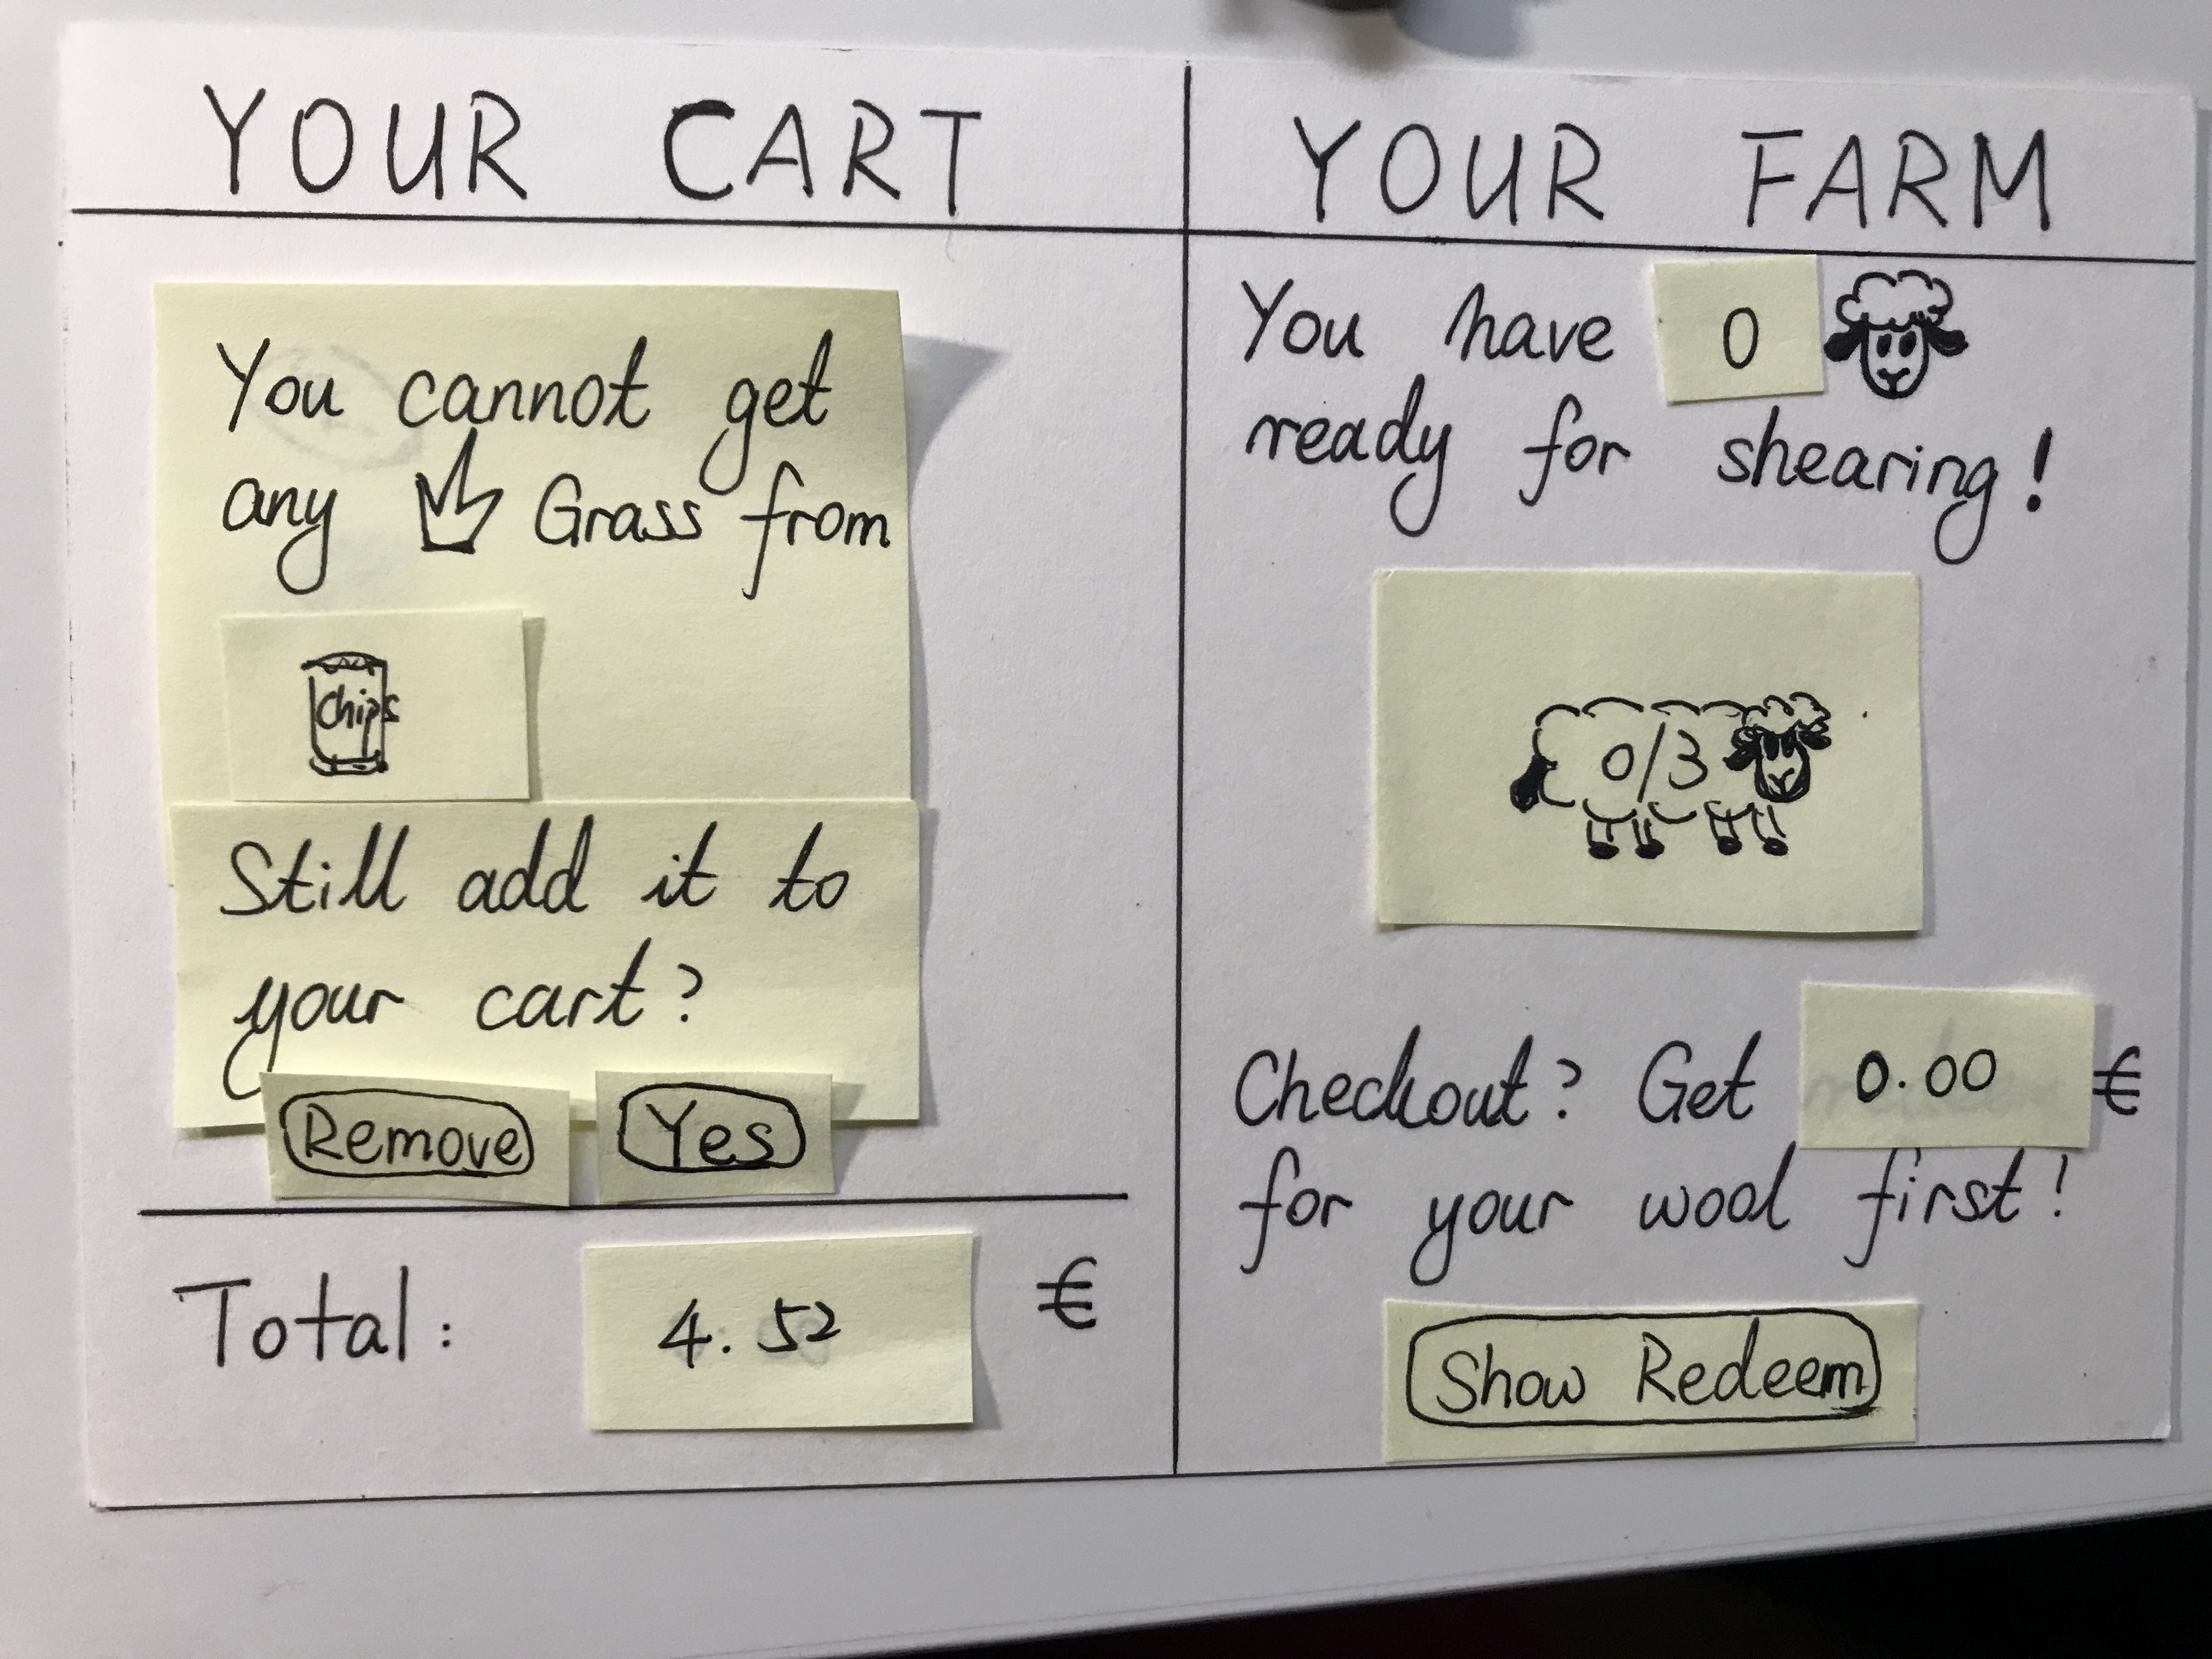 YOUR CART
You cannot get
any Grass from
Chips
Still add it to
your cart?
Remove Yes
Total: 4.52 €
YOUR FARM
You have 0
ready for shearing!
0/3
Checkout? Get 0.00 €
for your wool first!
Show Redeem